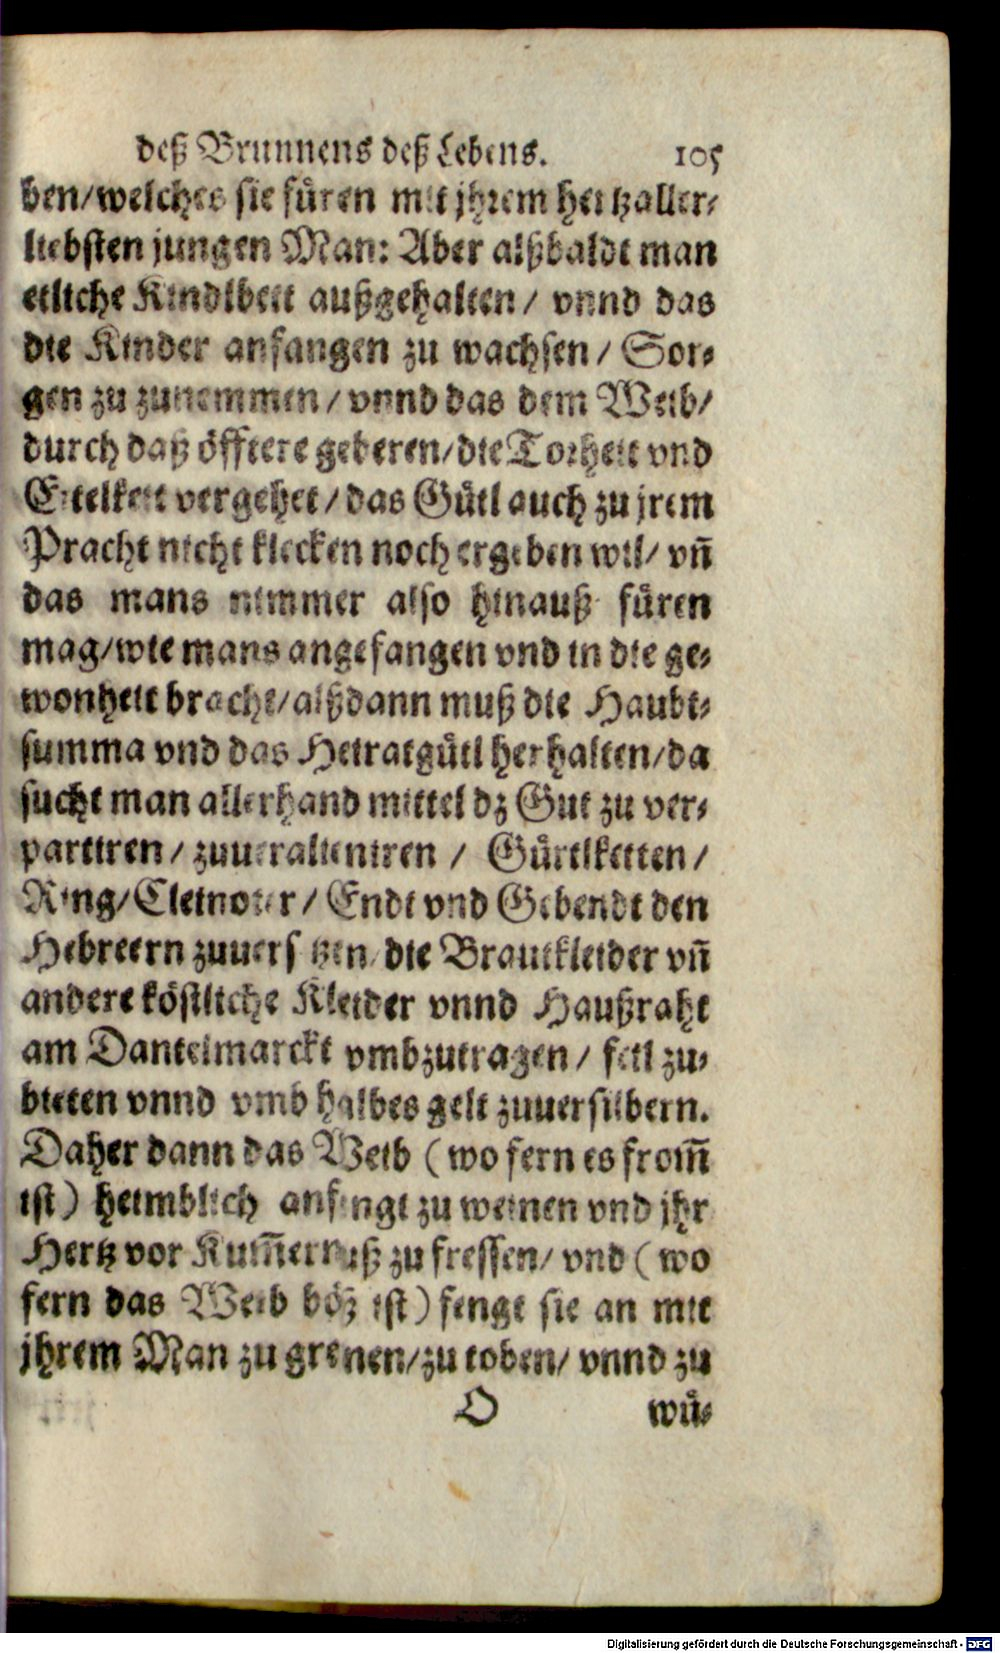 deß Brunnens deß Lebens. 105
ben/welches sie füren mit jhrem hertzaller⸗
liebsten jungen Man: Aber alßbaldt man
etliche Kindlbett außgehalten/ vnnd das
die Kinder anfangen zu wachsen/ Sor⸗
gen zu zunemmen/ vnnd das dem Weib/
durch daß öfftere geberen/die Torheit vnd
Eitelkeit vergehet/ das Gütl auch zu jrem
Pracht nicht klecken noch ergeben wil/ vñ
das mans nimmer also hinauß füren
mag/wie mans angefangen vnd in die ge⸗
wonheit bracht/alßdann muß die Haubt⸗
summa vnd das Heiratgütl herhalten/da
sucht man allerhand mittel dz Gut zu ver⸗
partiren/ zuueralieniren / Gürtlketten/
Ring/Cleinoter/ Endt vnd Gebendt den
Hebreern zuuersetzen/die Brautkleider vñ
andere köstliche Kleider vnnd Haußraht
am Dantelmarckt vmbzutragen/ feil zu⸗
bieten vnnd vmb halbes gelt zuuersilbern.
Daher dann das Weib (wo fern es from̃
ist) heimblich anfengt zu weinen vnd jhr
Hertz vor Kum̃ernuß zu fressen/ vnd (wo
fern das Weib böß ist) fengt sie an mit
jhrem Man zu grenen/zu toben/ vnnd zu
O wü⸗
Digitalisierung gefördert durch die Deutsche Forschungsgemeinschaft - DFG